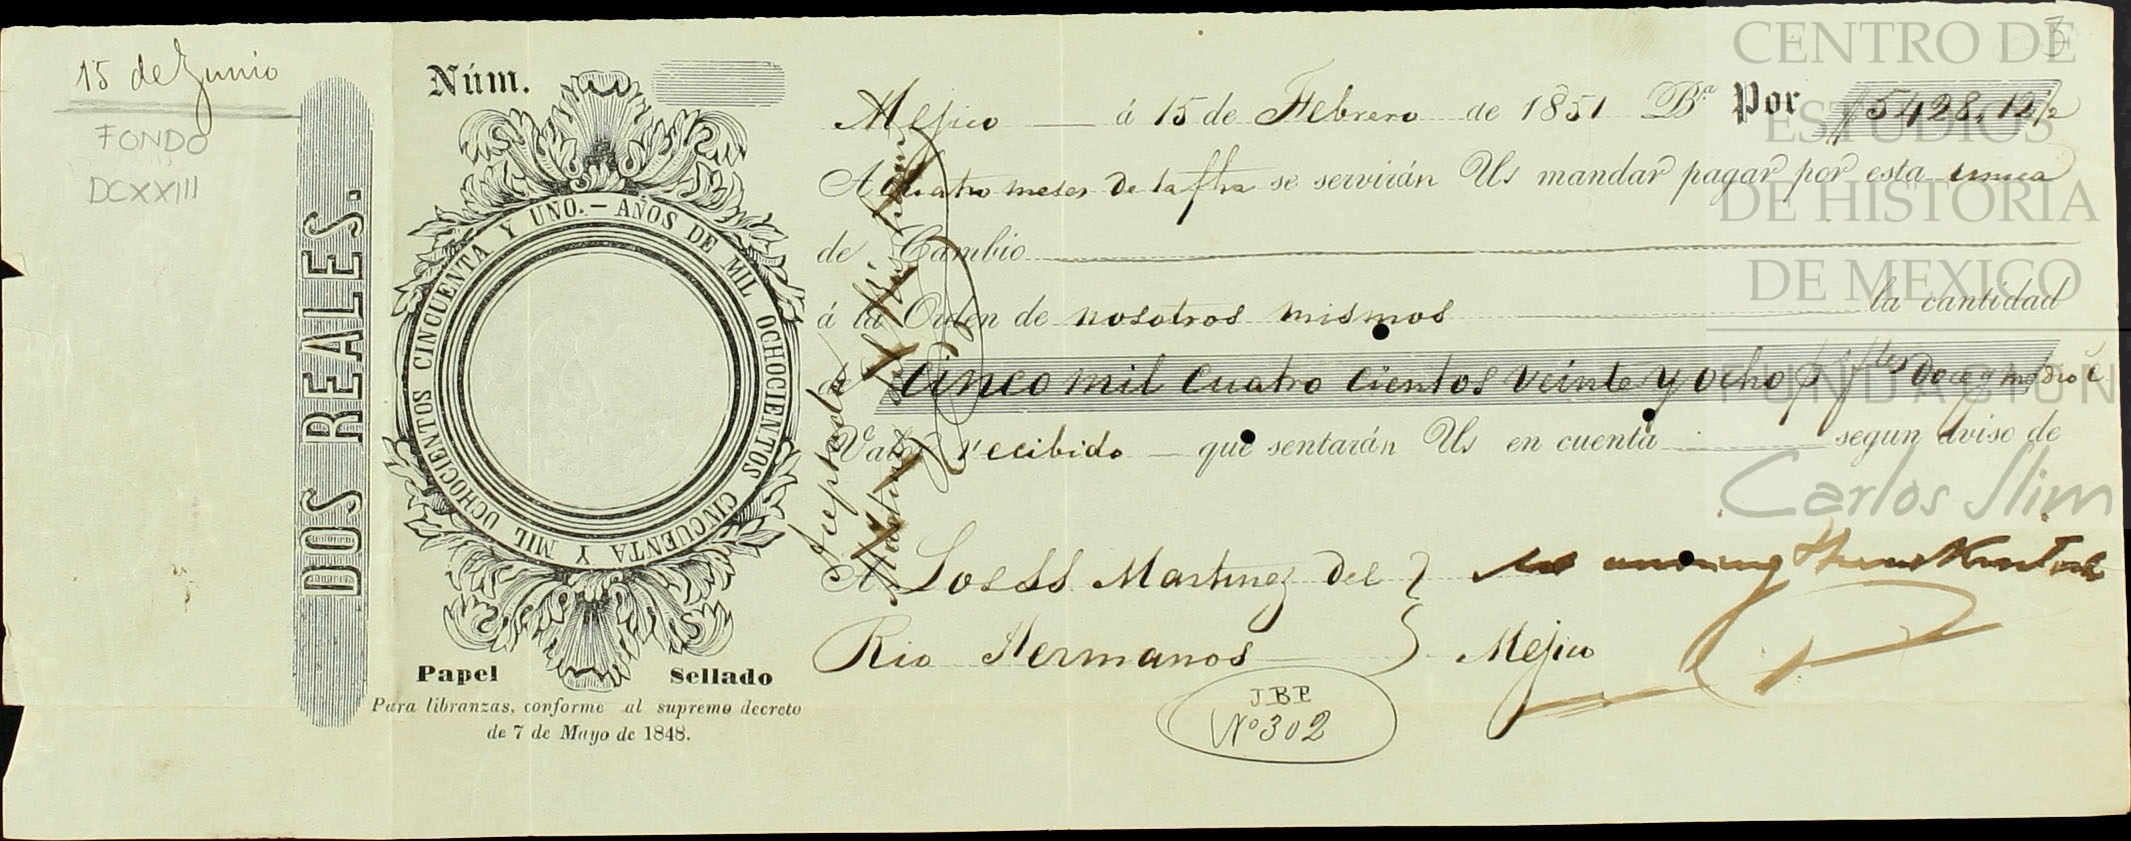 15 de Junio
FONDO
DCXXIII
DOS REALES.
Núm.
UNO.–AÑOS DE MIL OCHOCIENTOS CINCUENTA Y MIL OCHOCIENTOS CINCUENTA Y
Papel Sellado
Para libranzas, conforme al supremo decreto
de 7 de Mayo de 1848.
3
Mejico á 15 de Febrero de 1851 Bª. Por $5428,12½
A Cuatro meses de la fha se servirán Us mandar pagar por esta unica
de Cambio
á la Orden de nosotros mismos la cantidad
de Cinco mil cuatro cientos veinte y ocho p. ftes doce y medio c.
Valor recibido que sentarán Us en cuenta segun aviso de
A Los SS. Martinez del
Rio Hermanos Mejico
Aceptada
Martinez del Rio
J.B.F.
Nº 302
CENTRO DE
ESTUDIOS
DE HISTORIA
DE MEXICO
FUNDACIÓN
Carlos Slim